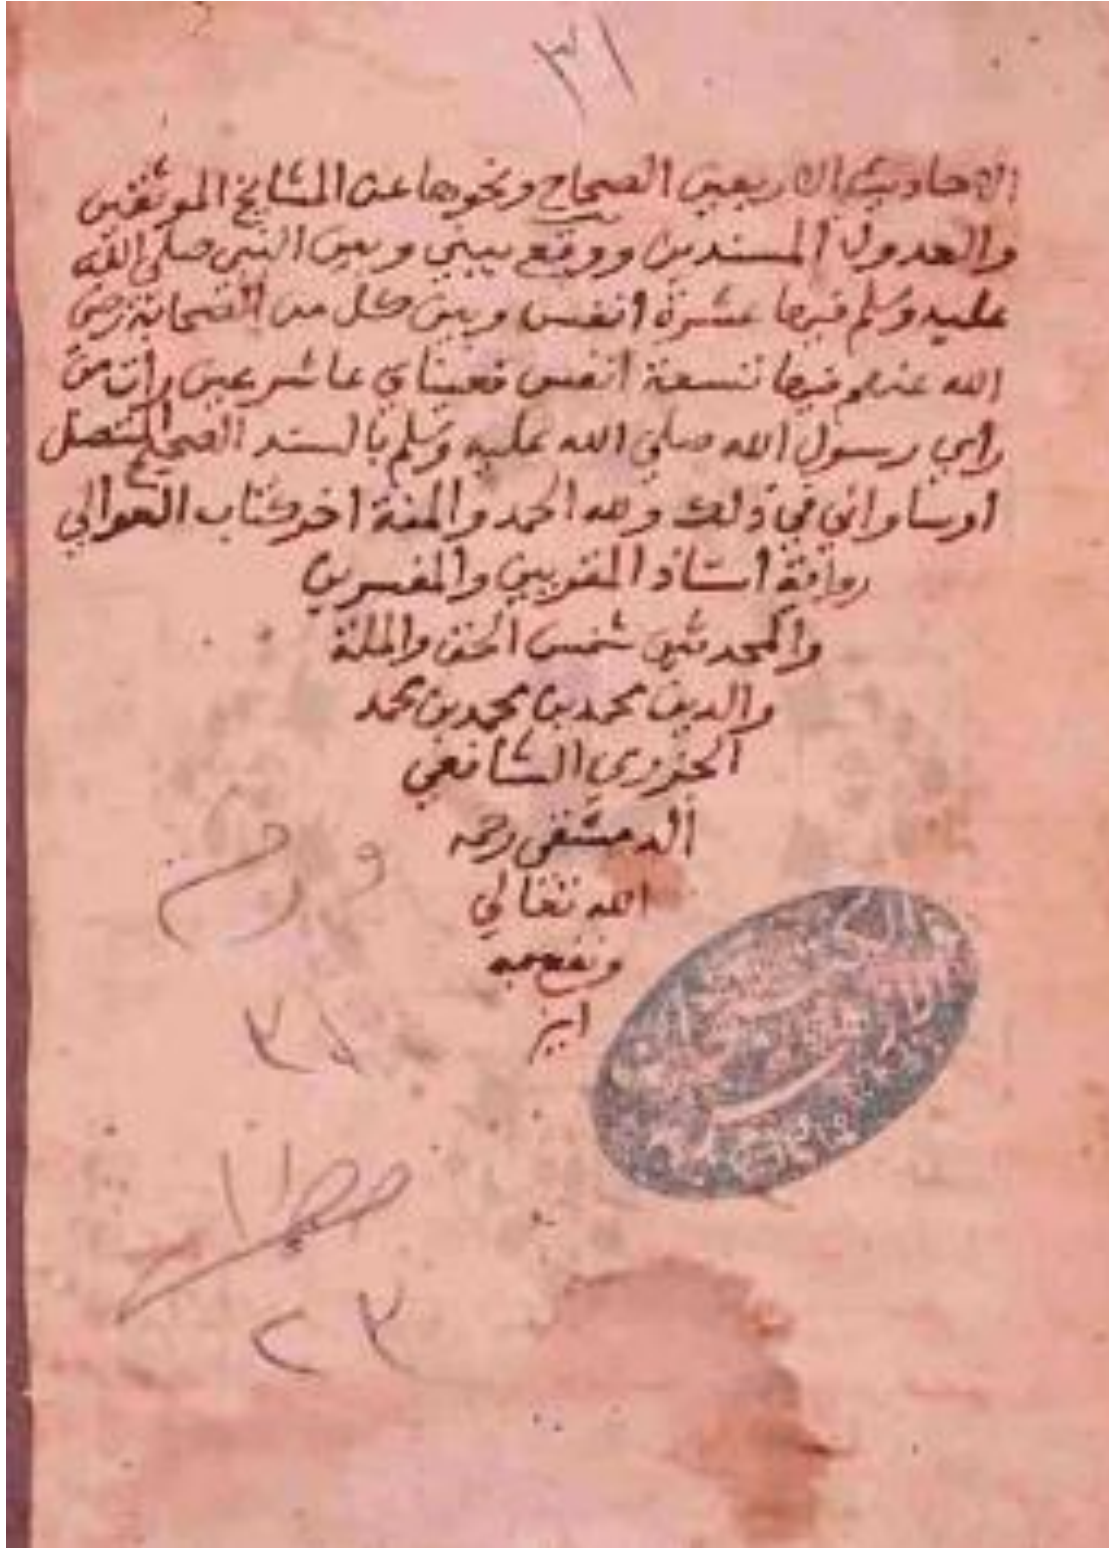 ٣١
الاحاديث الاربعين الصحاح ونحوها عن المشايخ الموثقين
والعدول المسندين ووقع بيني وبين النبي صلى الله
عليه وسلم فيها عشرة انفس وبين كل من الصحابة رضي
الله عنهم فيها تسعة انفس فعيناي عاشر عين رات من
راي رسول الله صلي الله عليه وسلم بالسند الصحيح المتصل
اوساواني في ذلك ولله الحمد والمنة اخر كتاب العوالي
رواية استاذ المقريين والمفسرين
والمحدثين شمس الحق والملة
والدين محمد بن محمد بن محمد
الجزري الشافعي
الدمشقي رحمه
الله تعالي
ونفع به
امين
ورم
٣١
٢٣